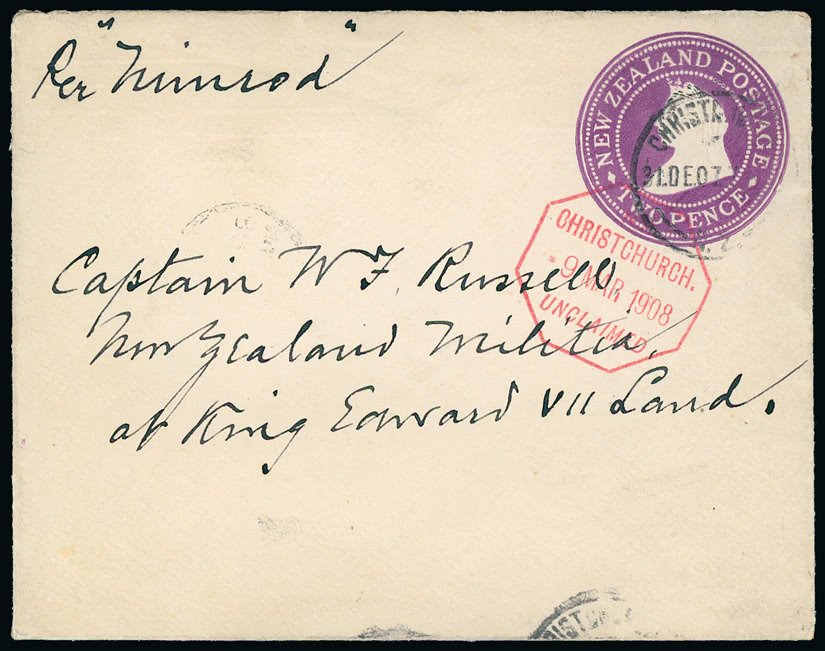 Per "Nimrod"
NEW ZEALAND POSTAGE
TWO PENCE
31 DE 07
CHRISTCHURCH.
9 MAR 1908
UNCLAIMED
Captain W F. Russell,
New Zealand Militia,
at King Edward VII Land.